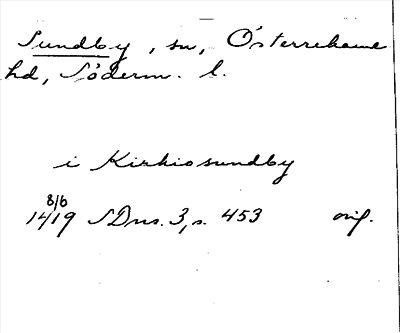 Sundby, sn, Österrekarne
hd, Söderm. l.
i Kirkiosundby
8/6
1419 SDns. 3, s. 453 orig.